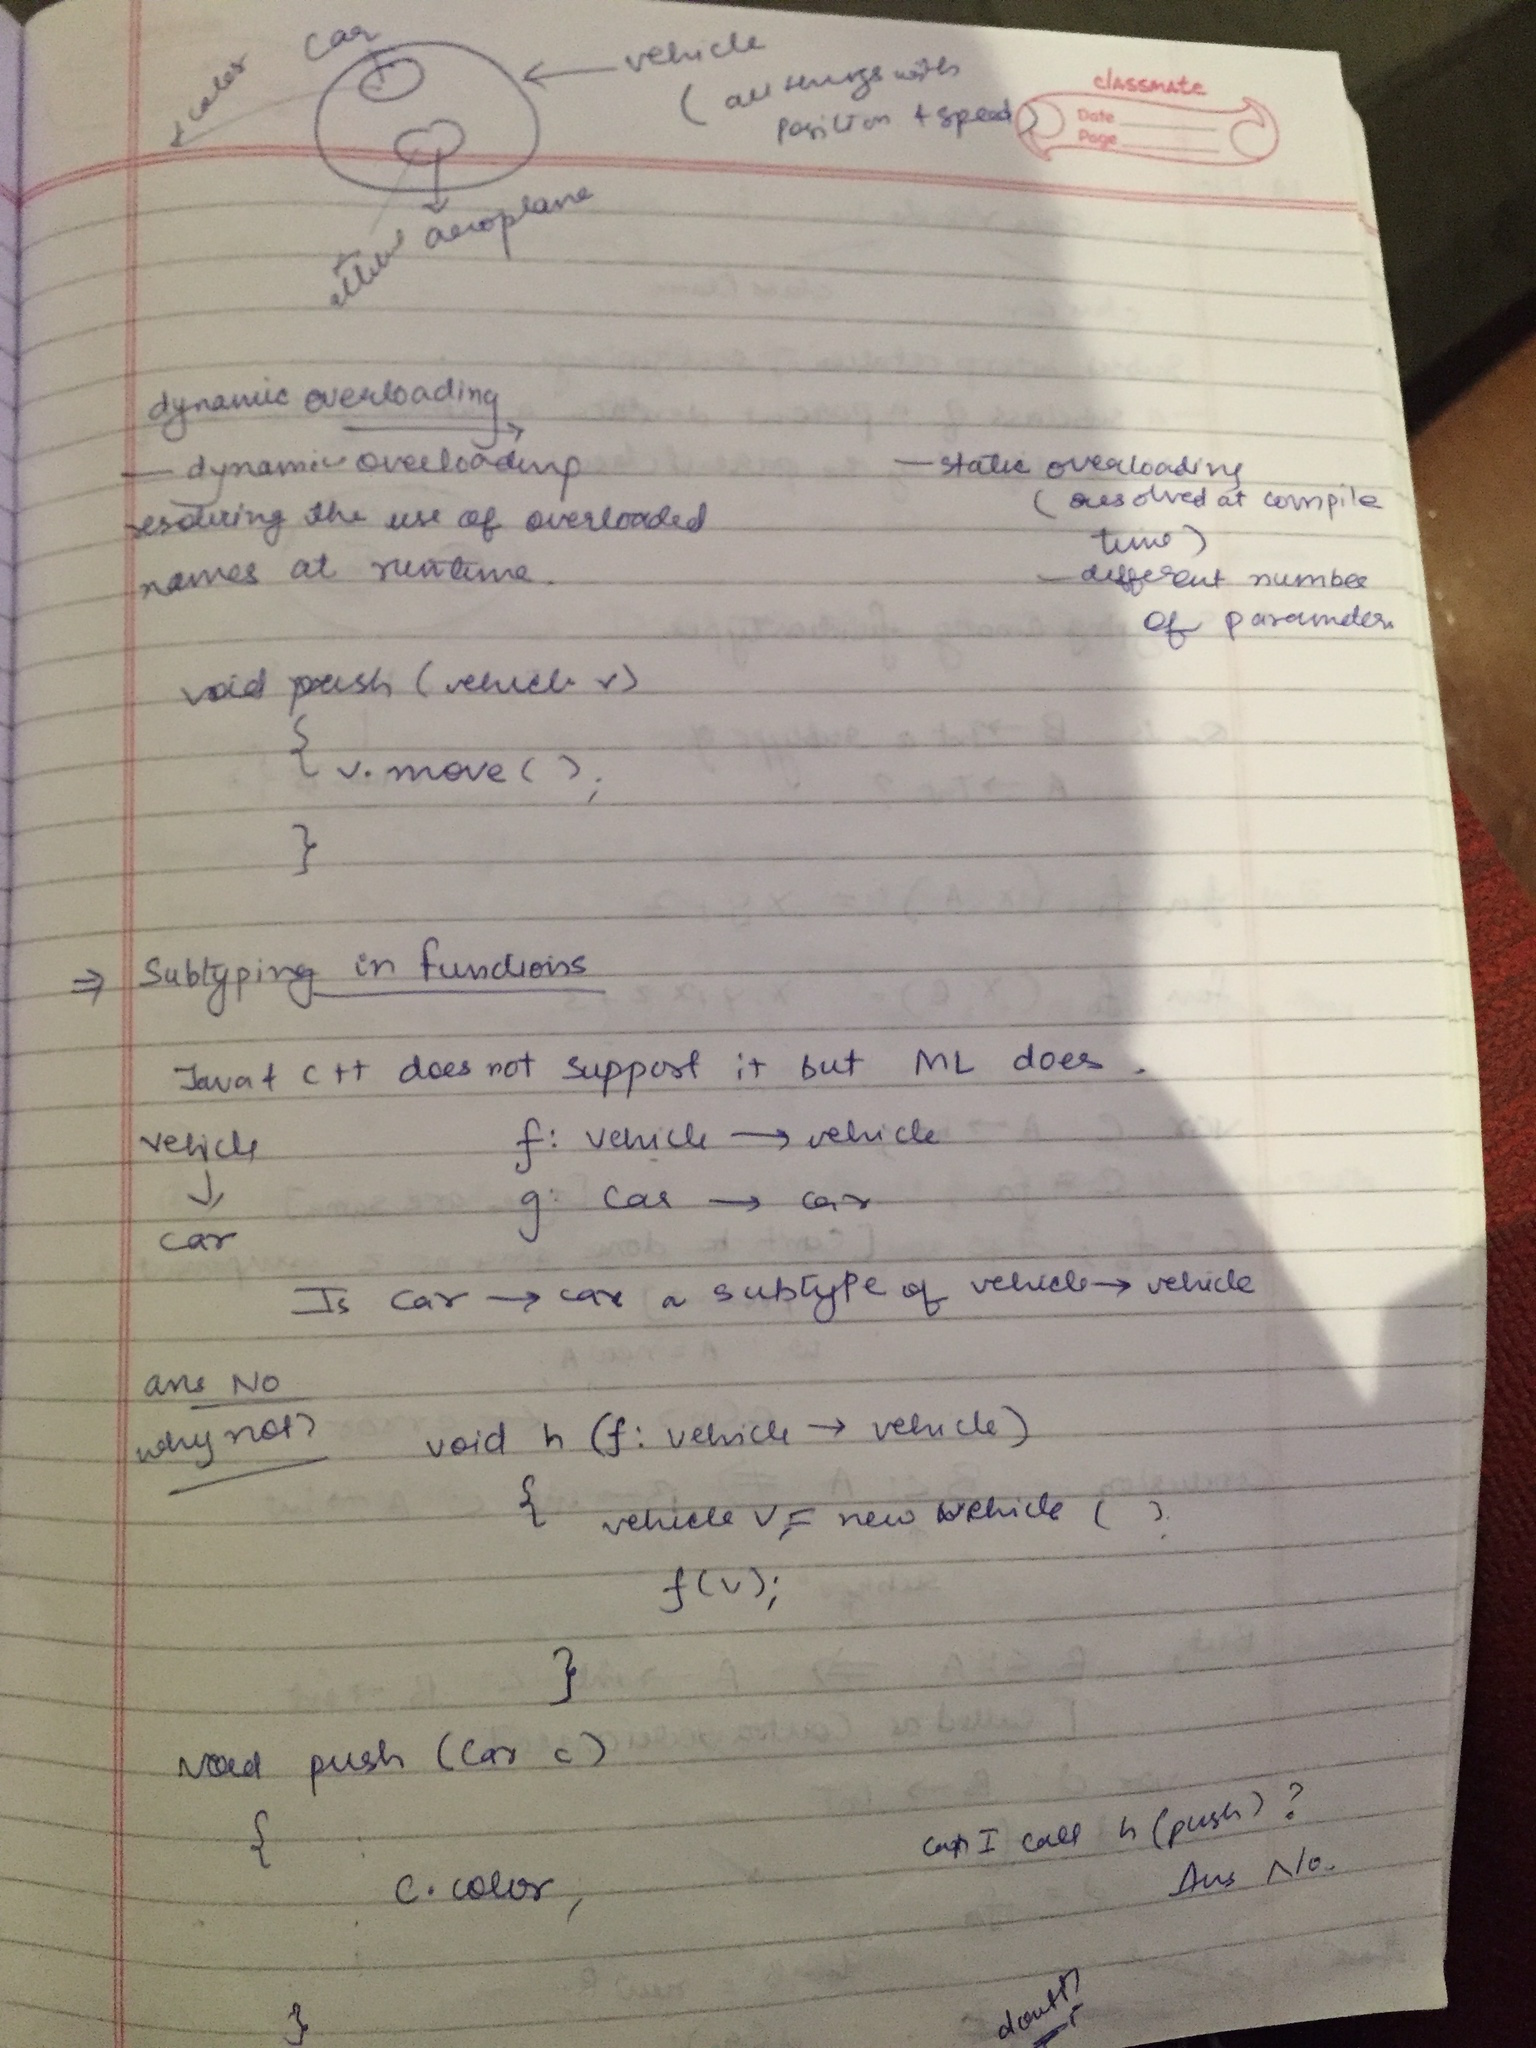 color
car
vehicle
(all things with
position + speed)
classmate
Date
Page
aeroplane
dynamic overloading
— dynamic overloading
resolving the use of overloaded
names at runtime.
— static overloading
(resolved at compile
time)
— different number
of parameters
void push (vehicle v)
{
v.move();
}
⇒ Subtyping in functions
Java & C++ does not support it but ML does.
vehicle
↓
car
f: vehicle → vehicle
g: car → car
Is car → car a subtype of vehicle → vehicle
ans No
why not?
void h (f: vehicle → vehicle)
{
vehicle v = new vehicle ( );
f(v);
}
void push (Car c)
{
c.color;
}
can I call h (push)?
Ans No.